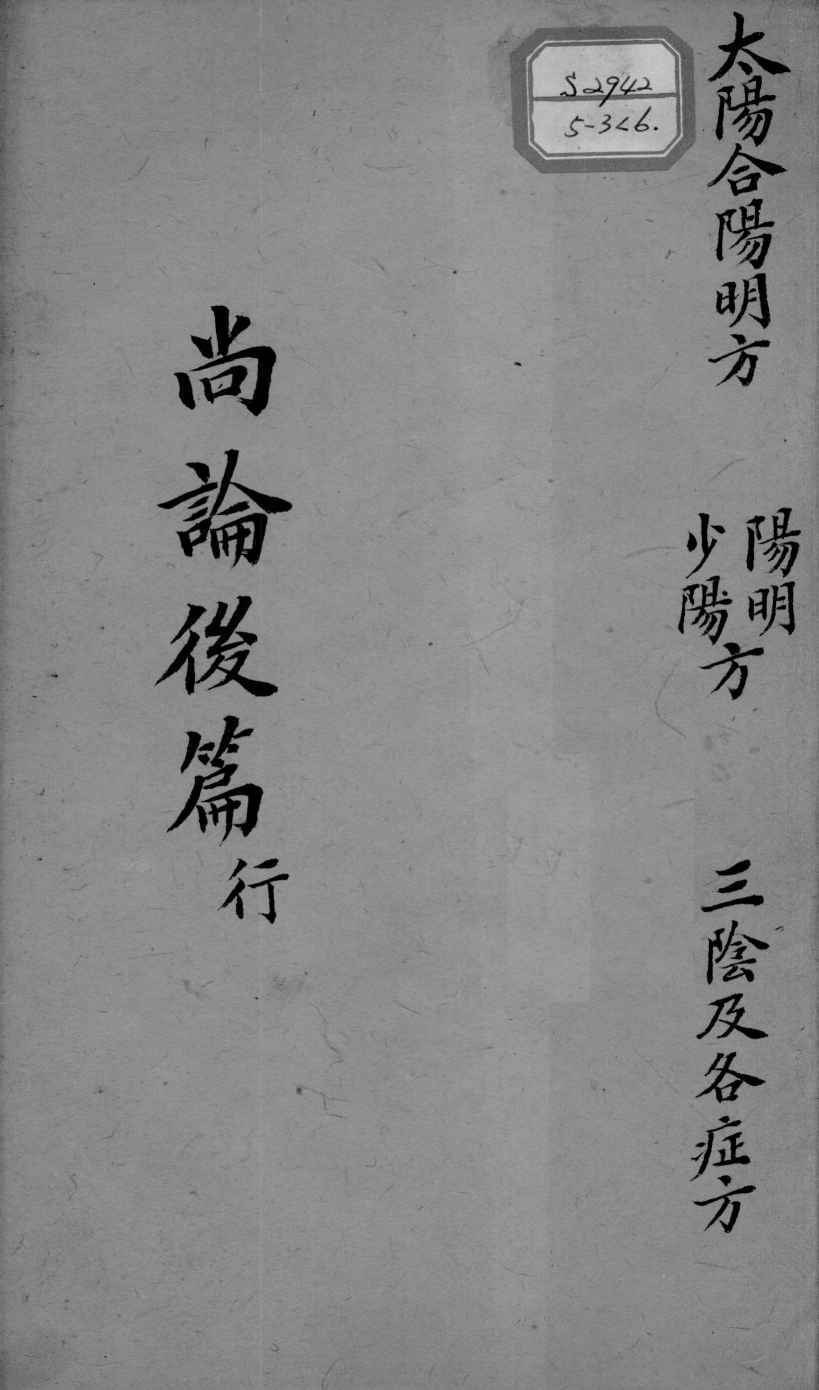 太陽合陽明方
陽明
少陽方
三陰及各症方
S2942
5-3<6.
尚論後篇行